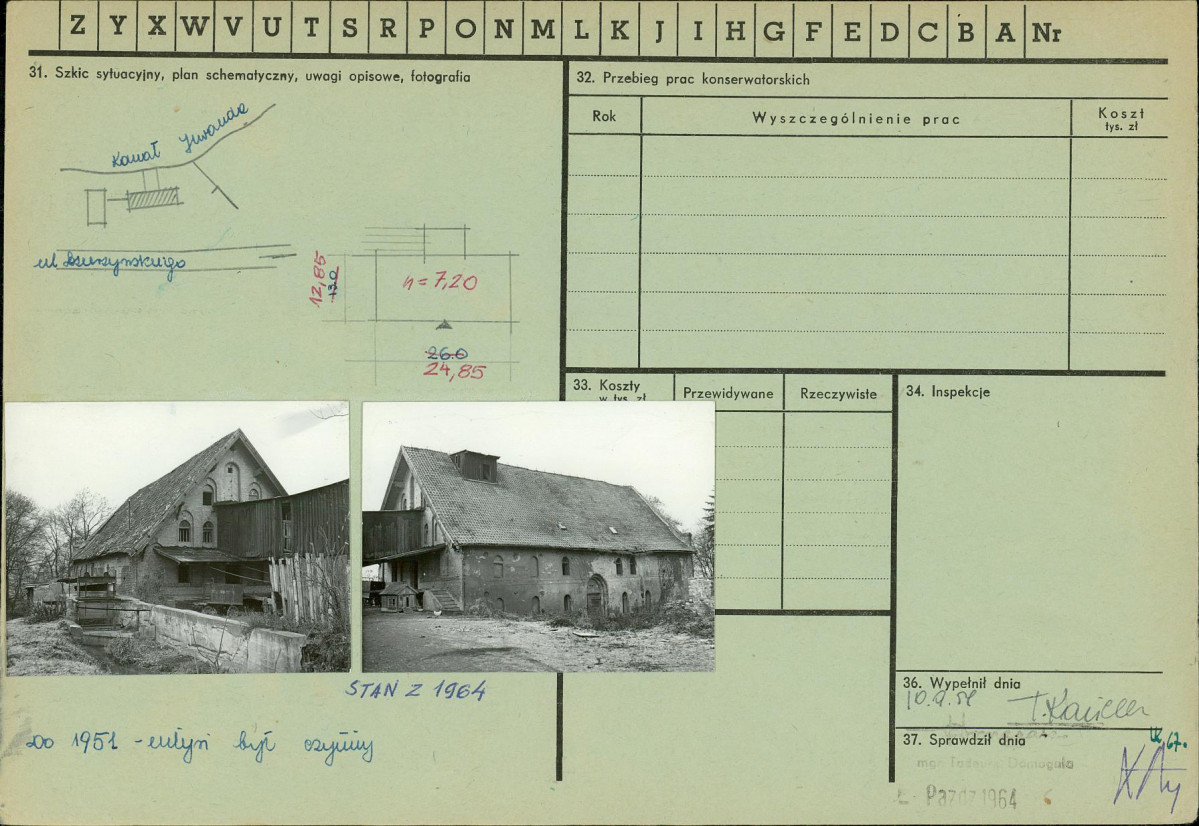 Z Y X W V U T S R P O N M L K J I H G F E D C B A Nr
31. Szkic sytuacyjny, plan schematyczny, uwagi opisowe, fotografia
Kanał Juranda
ul Dzierżyńskiego
12,85
13,0
h = 7,20
26.0
24,85
STAN Z 1964
Do 1951 - młyn był czynny
32. Przebieg prac konserwatorskich
Rok
Wyszczególnienie prac
Koszt
tys. zł
33. Koszty
w tys. zł
Przewidywane
Rzeczywiste
34. Inspekcje
36. Wypełnił dnia
37. Sprawdził dnia
IX.67.
mgr Tadeusz Domagała
Paźdz 1964